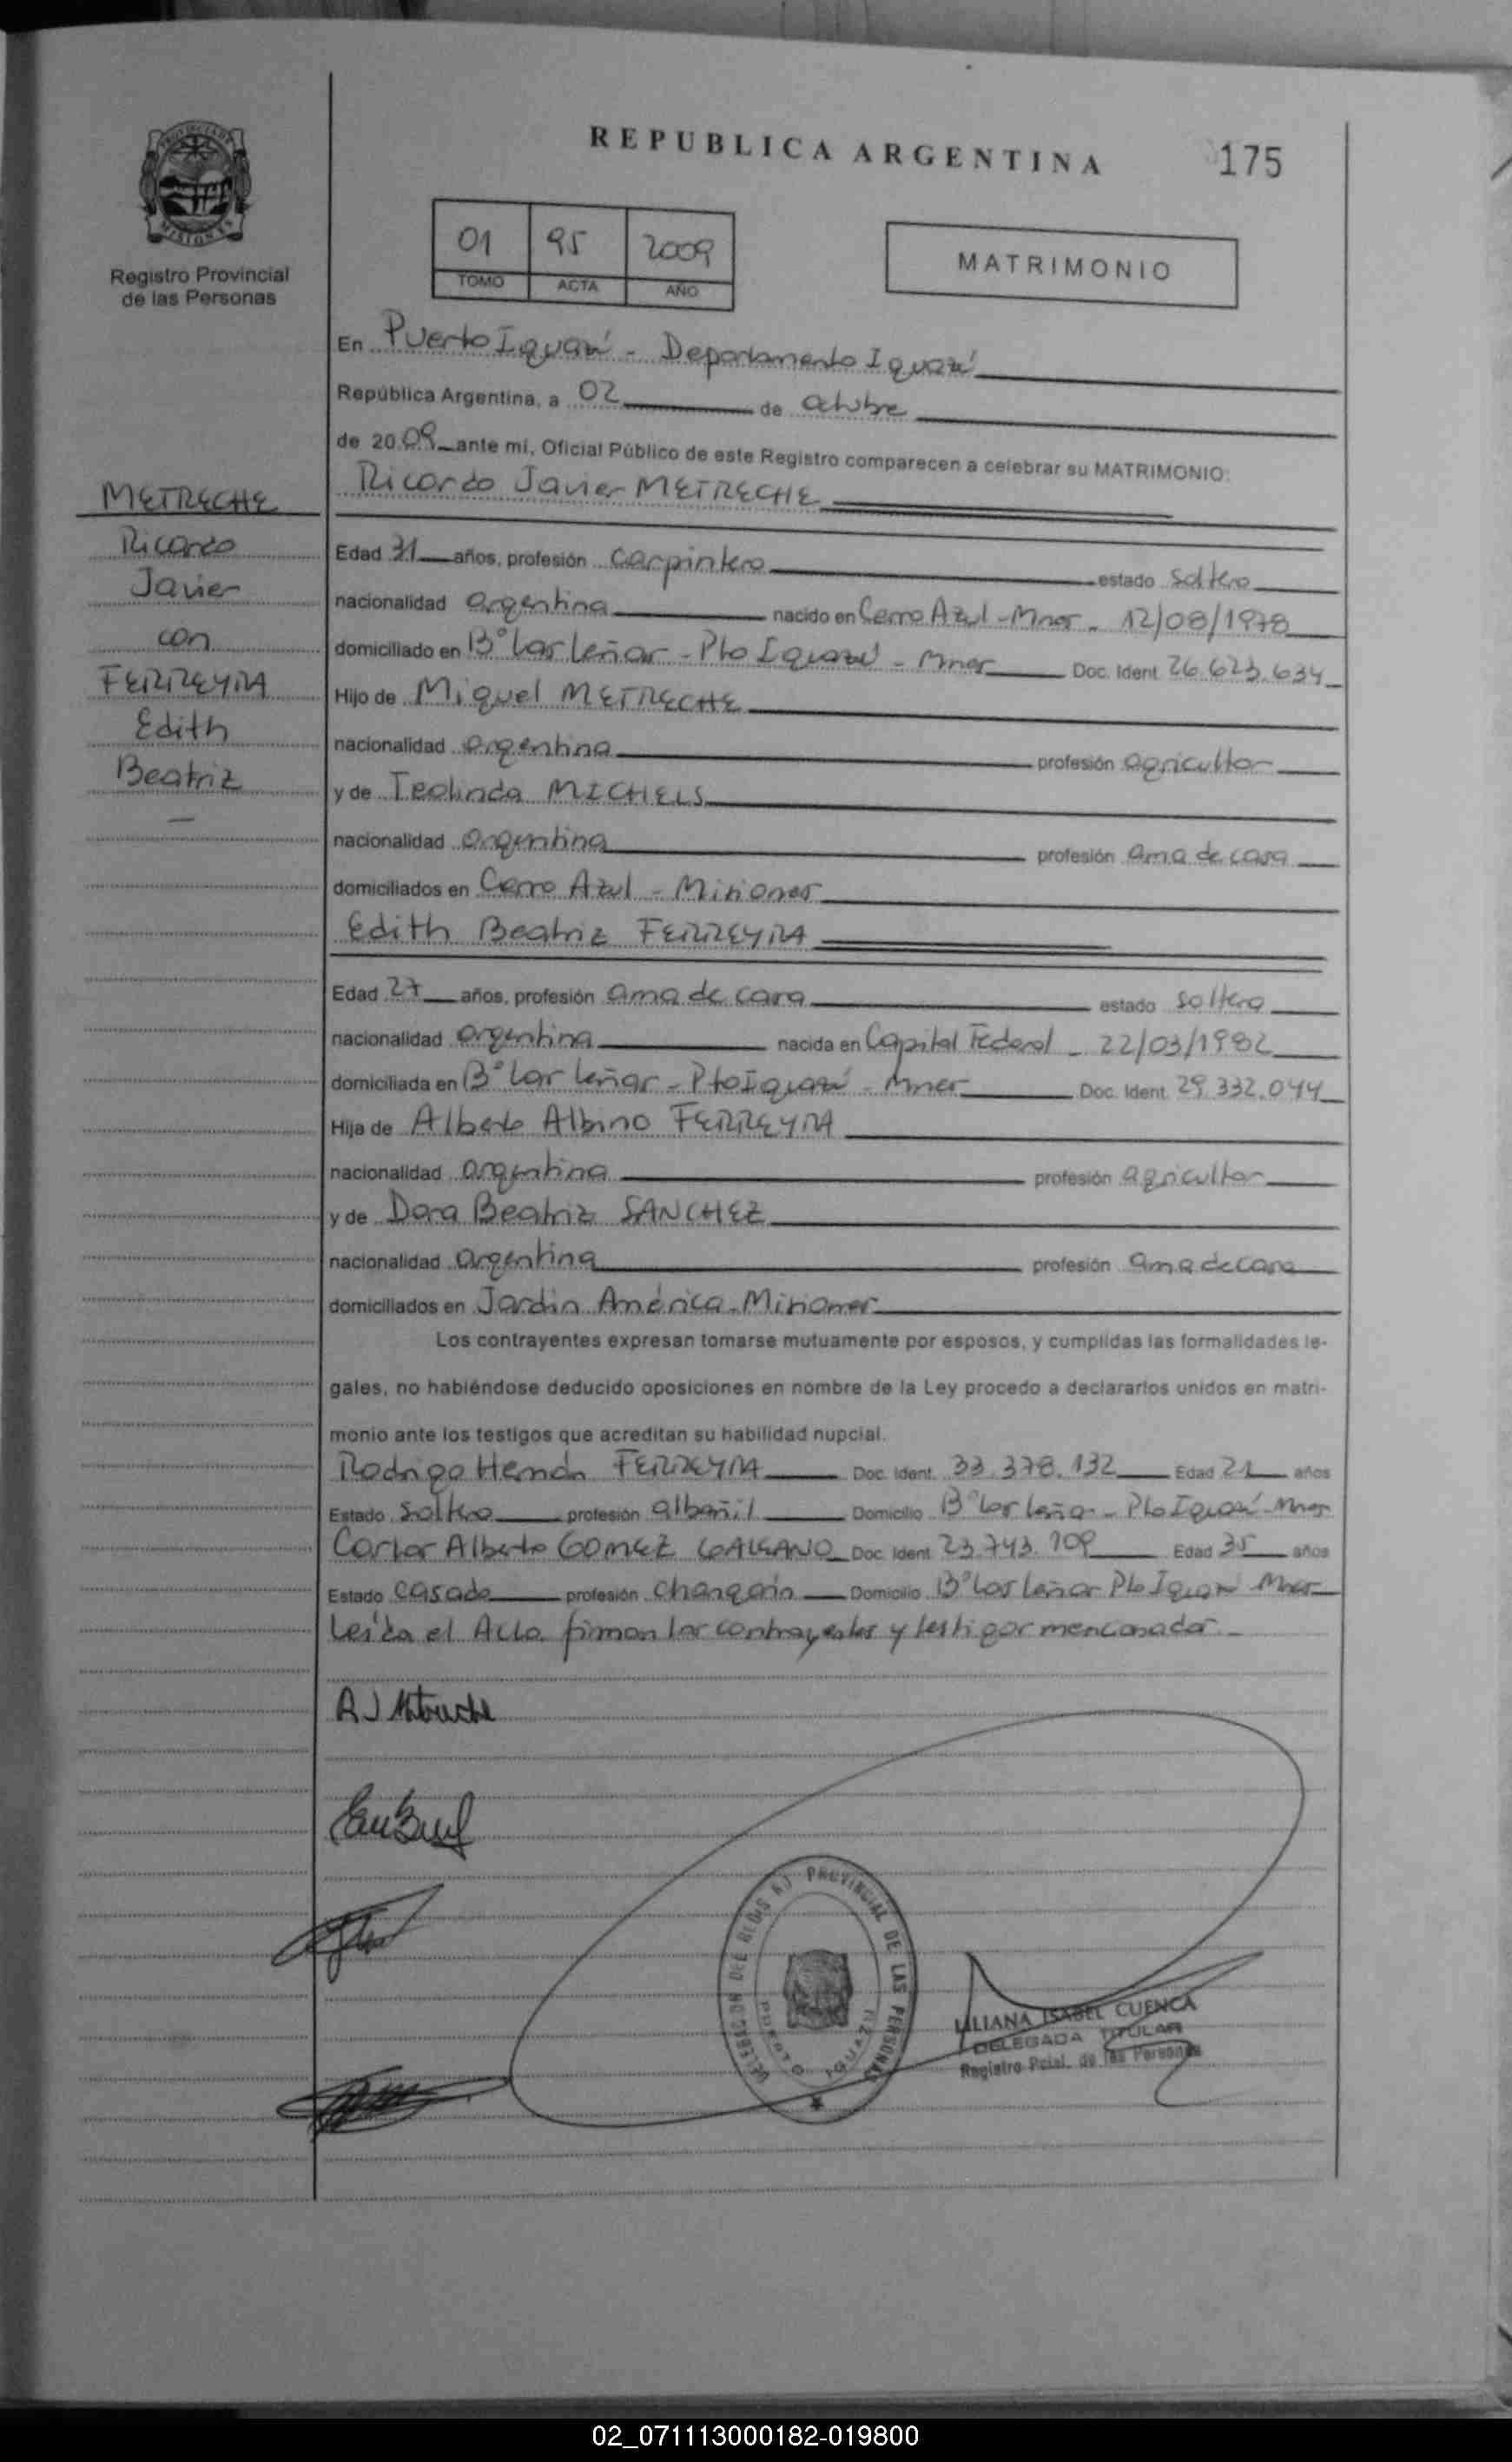 REPUBLICA ARGENTINA
175
PROVINCIA DE
MISIONES
Registro Provincial
de las Personas
01 95 2009
TOMO ACTA AÑO
MATRIMONIO
En Puerto Iguazú - Departamento Iguazú
República Argentina, a 02 de octubre
de 2009 ante mí, Oficial Público de este Registro comparecen a celebrar su MATRIMONIO:
Ricardo Javier METRECHE
METRECHE
Ricardo
Javier
con
FERREYRA
Edith
Beatriz
Edad 31 años, profesión carpintero estado soltero
nacionalidad argentina nacido en Cerro Azul - Mnes - 12/08/1978
domiciliado en B° Las Leñas - Pto Iguazú - Mnes Doc. Ident. 26.623.634
Hijo de Miguel METRECHE
nacionalidad argentina profesión agricultor
y de Teolinda MICHELS
nacionalidad argentina profesión ama de casa
domiciliados en Cerro Azul - Misiones
Edith Beatriz FERREYRA
Edad 27 años, profesión ama de casa estado soltera
nacionalidad argentina nacida en Capital Federal - 22/03/1982
domiciliada en B° Las Leñas - Pto Iguazú - Mnes Doc. Ident. 29.332.044
Hija de Alberto Albino FERREYRA
nacionalidad argentina profesión agricultor
y de Dora Beatriz SANCHEZ
nacionalidad argentina profesión ama de casa
domiciliados en Jardín América - Misiones
Los contrayentes expresan tomarse mutuamente por esposos, y cumplidas las formalidades le-
gales, no habiéndose deducido oposiciones en nombre de la Ley procedo a declararlos unidos en matri-
monio ante los testigos que acreditan su habilidad nupcial.
Rodrigo Hernán FERREYRA Doc. Ident. 33.378.132 Edad 21 años
Estado soltero profesión albañil Domicilio B° Las Leñas - Pto Iguazú - Mnes
Carlos Alberto GOMEZ GALEANO Doc. Ident. 23.743.109 Edad 35 años
Estado casado profesión changarín Domicilio B° Las Leñas Pto Iguazú Mnes
Leída el Acta firman los contrayentes y testigos mencionados.-
DELEGACION DEL REGISTRO PROVINCIAL DE LAS PERSONAS
PUERTO IGUAZU
LILIANA ISABEL CUENCA
DELEGADA TITULAR
Registro Pcial. de las Personas
02_071113000182-019800